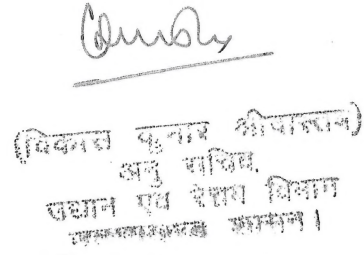 (विकास कुमार श्रीवास्तव)
अनु सचिव,
उद्यान एवं रेशम विभाग
शासन।